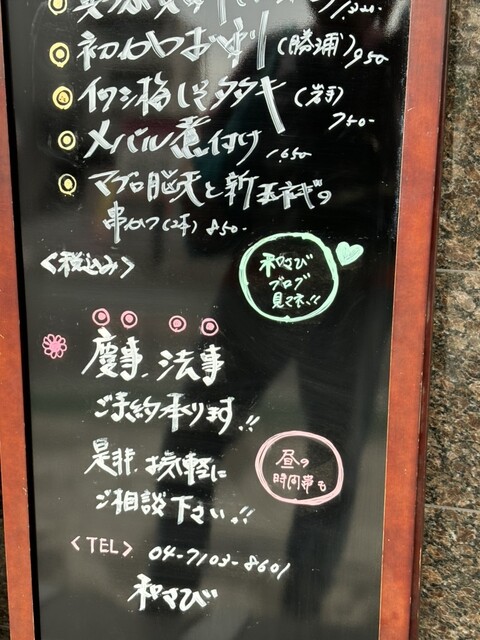 初かつおずり(勝浦)950
イワシ梅しそタタキ(岩手)
750-
メバル煮付け 1650-
マグロ脳天と新玉ネギの
串かつ(2本) 850-
<税込み>
和さび
ブログ
見てネ!!
慶事、法事
ご予約承ります!!
是非お気軽に
ご相談下さい!!
昼の
時間帯も
<TEL> 04-7103-8601
和さび